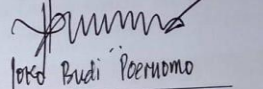 Joko Budi Poernomo